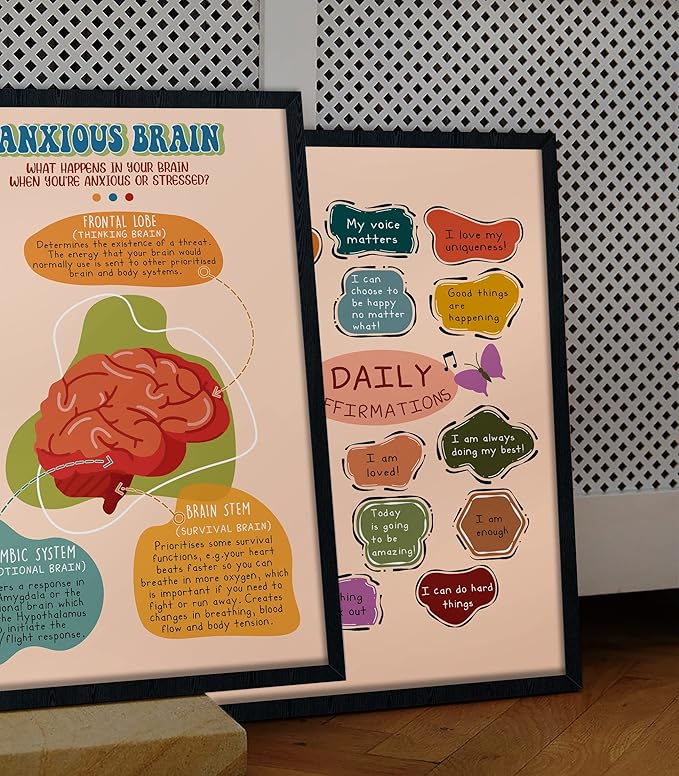 ANXIOUS BRAIN
WHAT HAPPENS IN YOUR BRAIN
WHEN YOU'RE ANXIOUS OR STRESSED?
FRONTAL LOBE
(THINKING BRAIN)
Determines the existence of a threat.
The energy that your brain would
normally use is sent to other prioritised
brain and body systems.
MBIC SYSTEM
OTIONAL BRAIN)
ers a response in
mygdala or the
ional brain which
the Hypothalamus
initiate the
/flight response.
BRAIN STEM
(SURVIVAL BRAIN)
Prioritises some survival
functions, e.g.your heart
beats faster so you can
breathe in more oxygen, which
is important if you need to
fight or run away. Creates
changes in breathing, blood
flow and body tension.
My voice
matters
I love my
uniqueness!
I can
choose to
be happy
no matter
what!
Good things
are
happening
DAILY
FFIRMATIONS
I am
loved!
I am always
doing my best!
Today
is going
to be
amazing!
I am
enough
hing
out
I can do hard
things